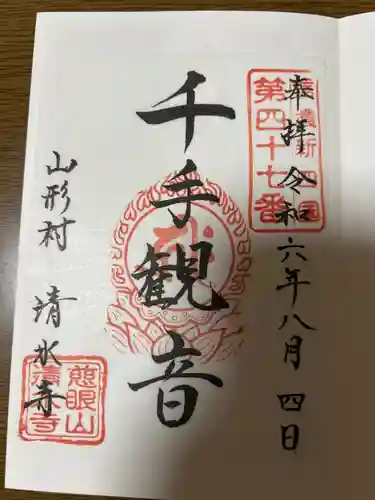 奉拝 令和六年八月四日
第四十七番
千手観音
山形村 清水寺
慈眼山
清水寺